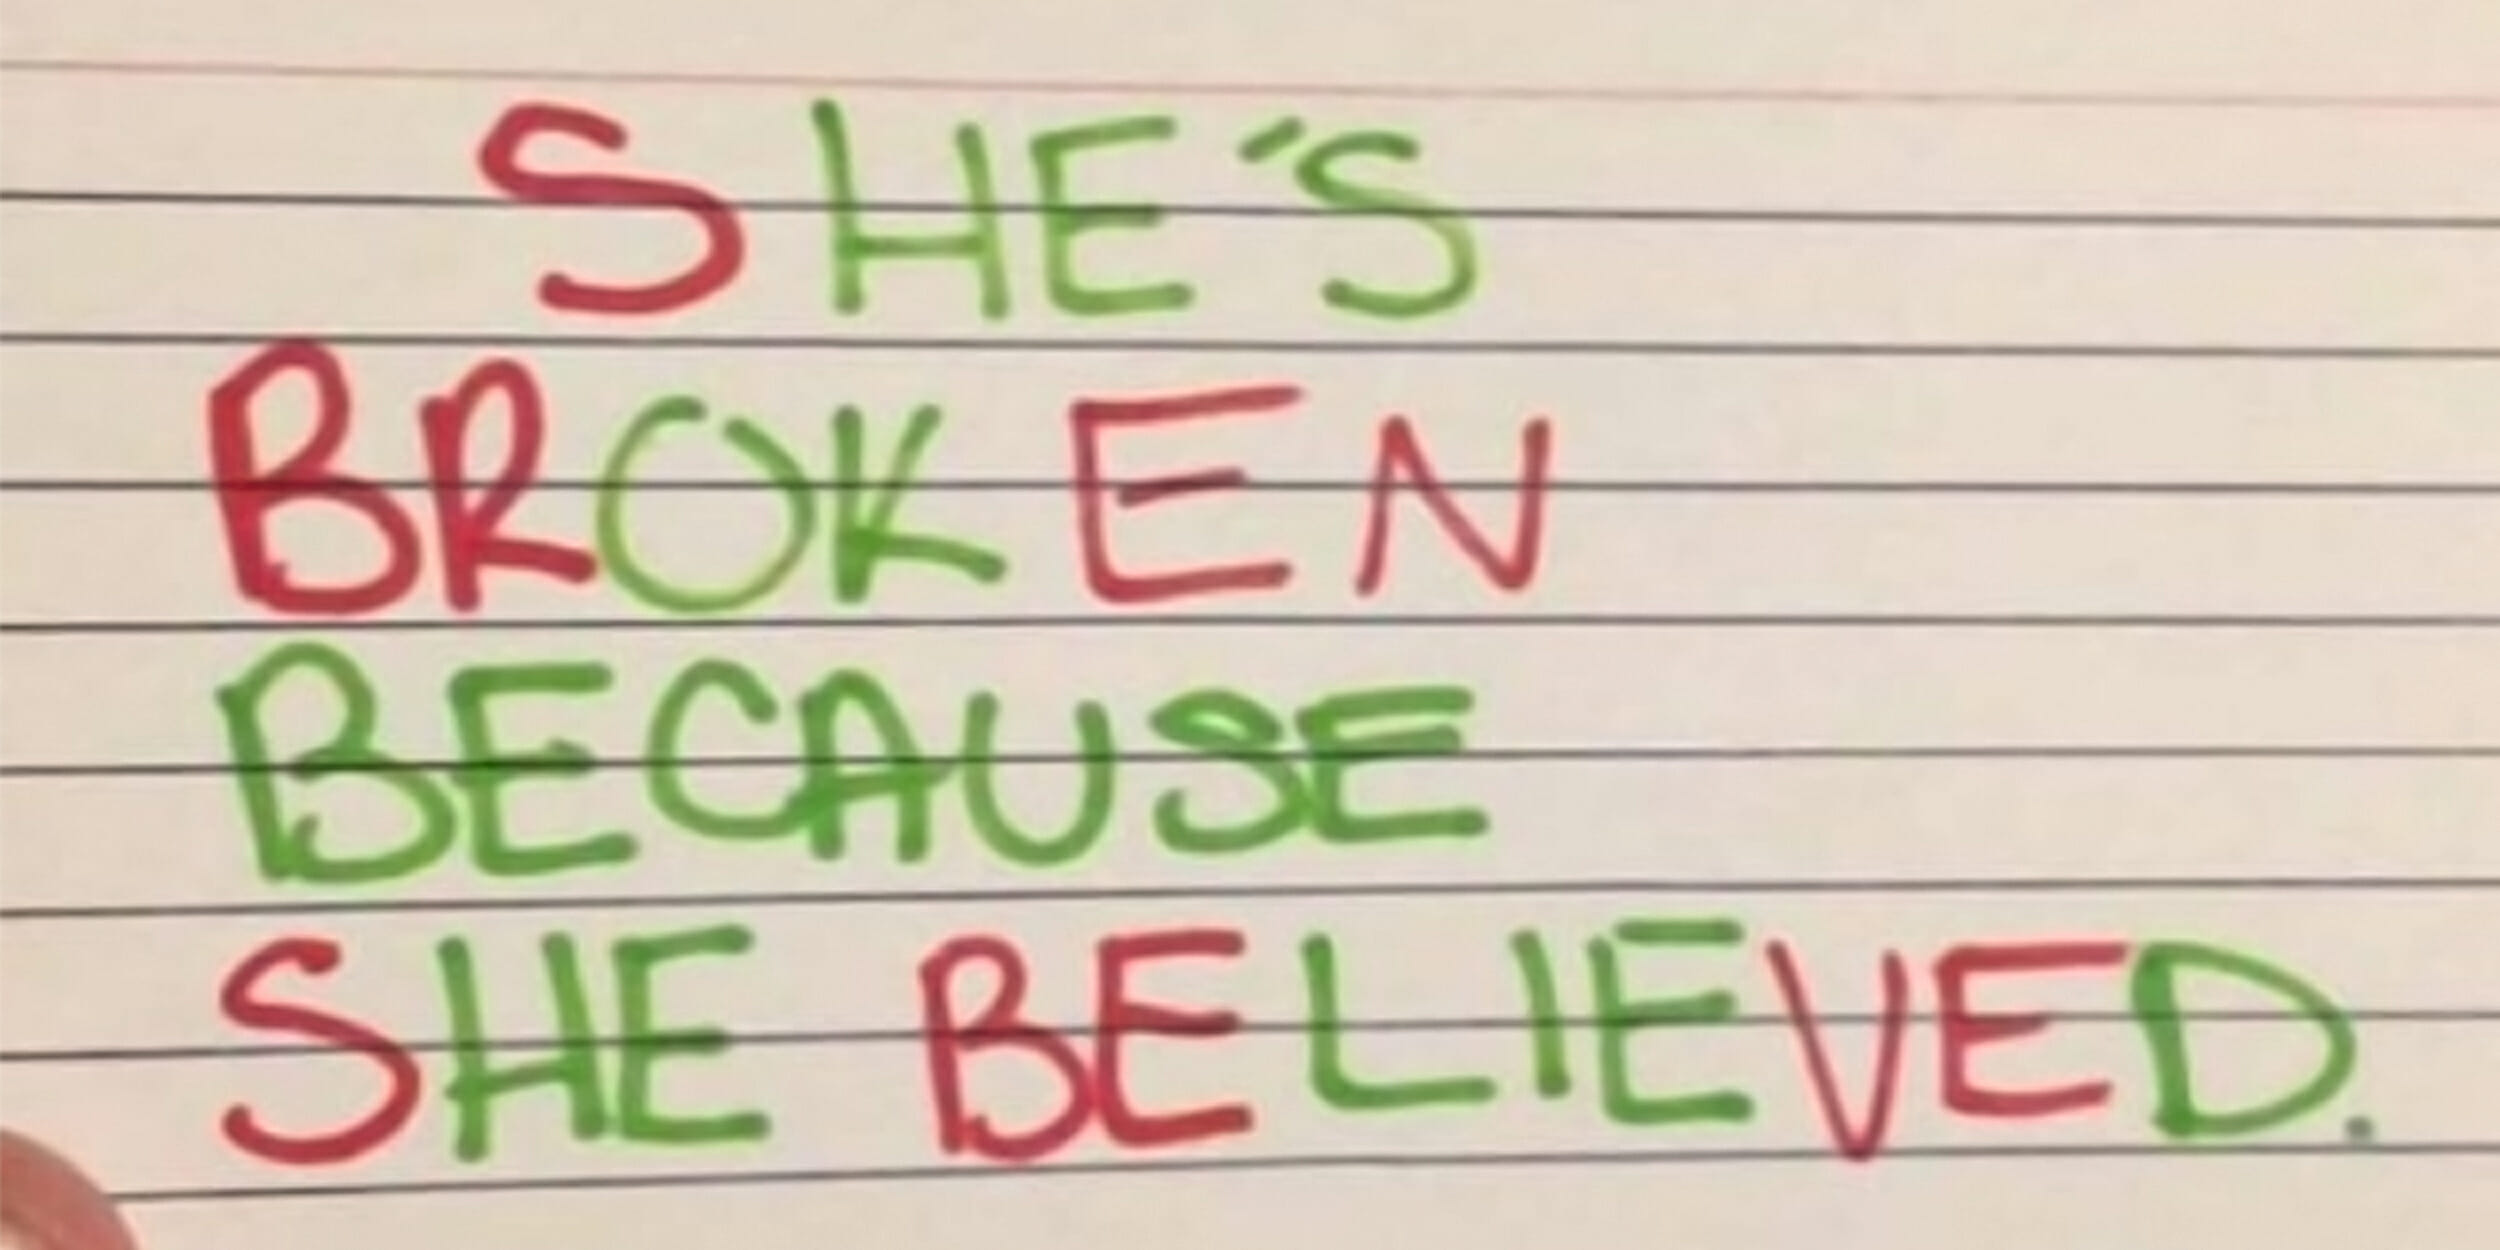 SHE'S
BROKEN
BECAUSE
SHE BELIEVED.